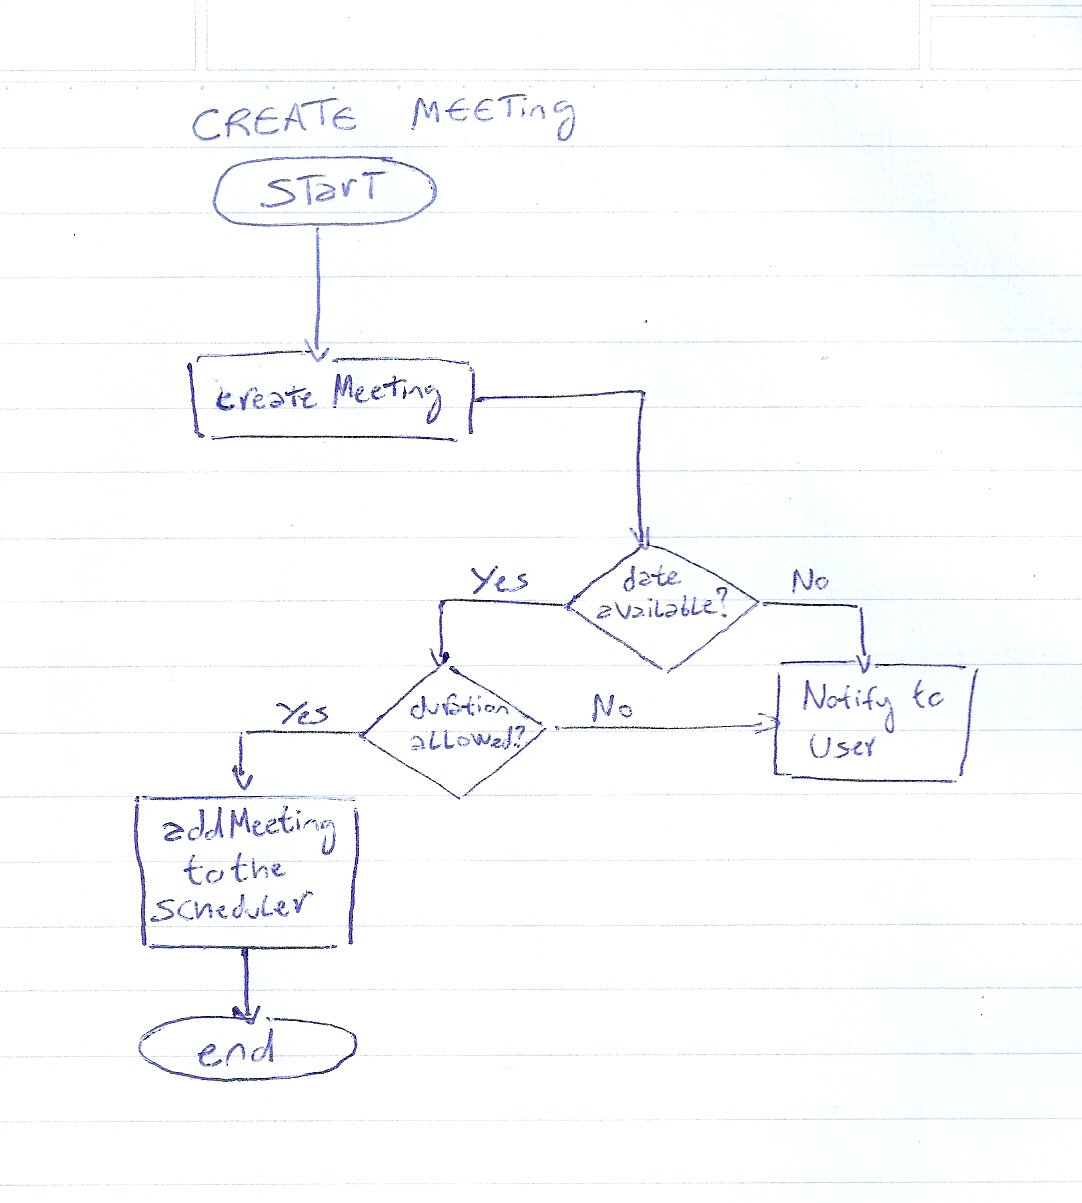 CREATE MEETing
STarT
create Meeting
date
available?
Yes
No
duration
allowed?
Yes
No
Notify to
User
add Meeting
to the
scheduler
end